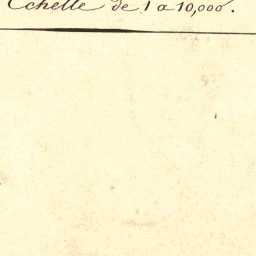 Echelle de 1 a 10,000.